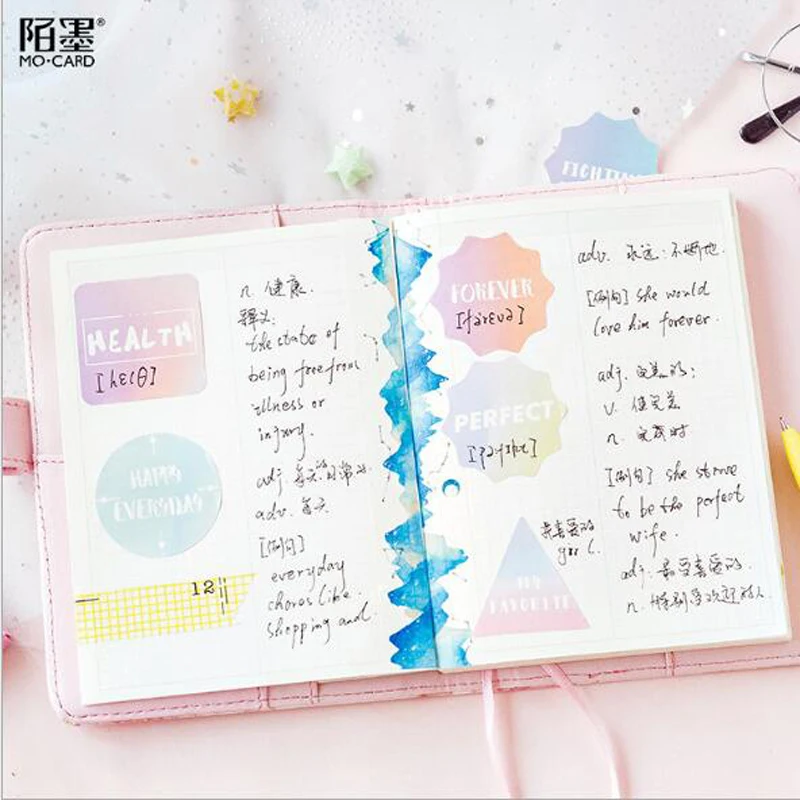 陌墨®
MO·CARD
FIGHTING
HEALTH
[helθ]
n. 健康.
释义:
the state of
being free from
illness or
injury.
HAPPY
EVERYDAY
adj. 每天的
adv. 每天
[例句]
everyday
chores like
shopping and
12
FOREVER
[fərevə]
adv. 永远;
[例句] she would
love him forever.
PERFECT
adj. 完美的;
v. 使完美
n. 完成时
[例句] she strove
to be the perfect
wife.
MY
FAVORITE
最喜爱的
girl.
adj. 最受喜爱的.
n. 特别受欢迎的人.